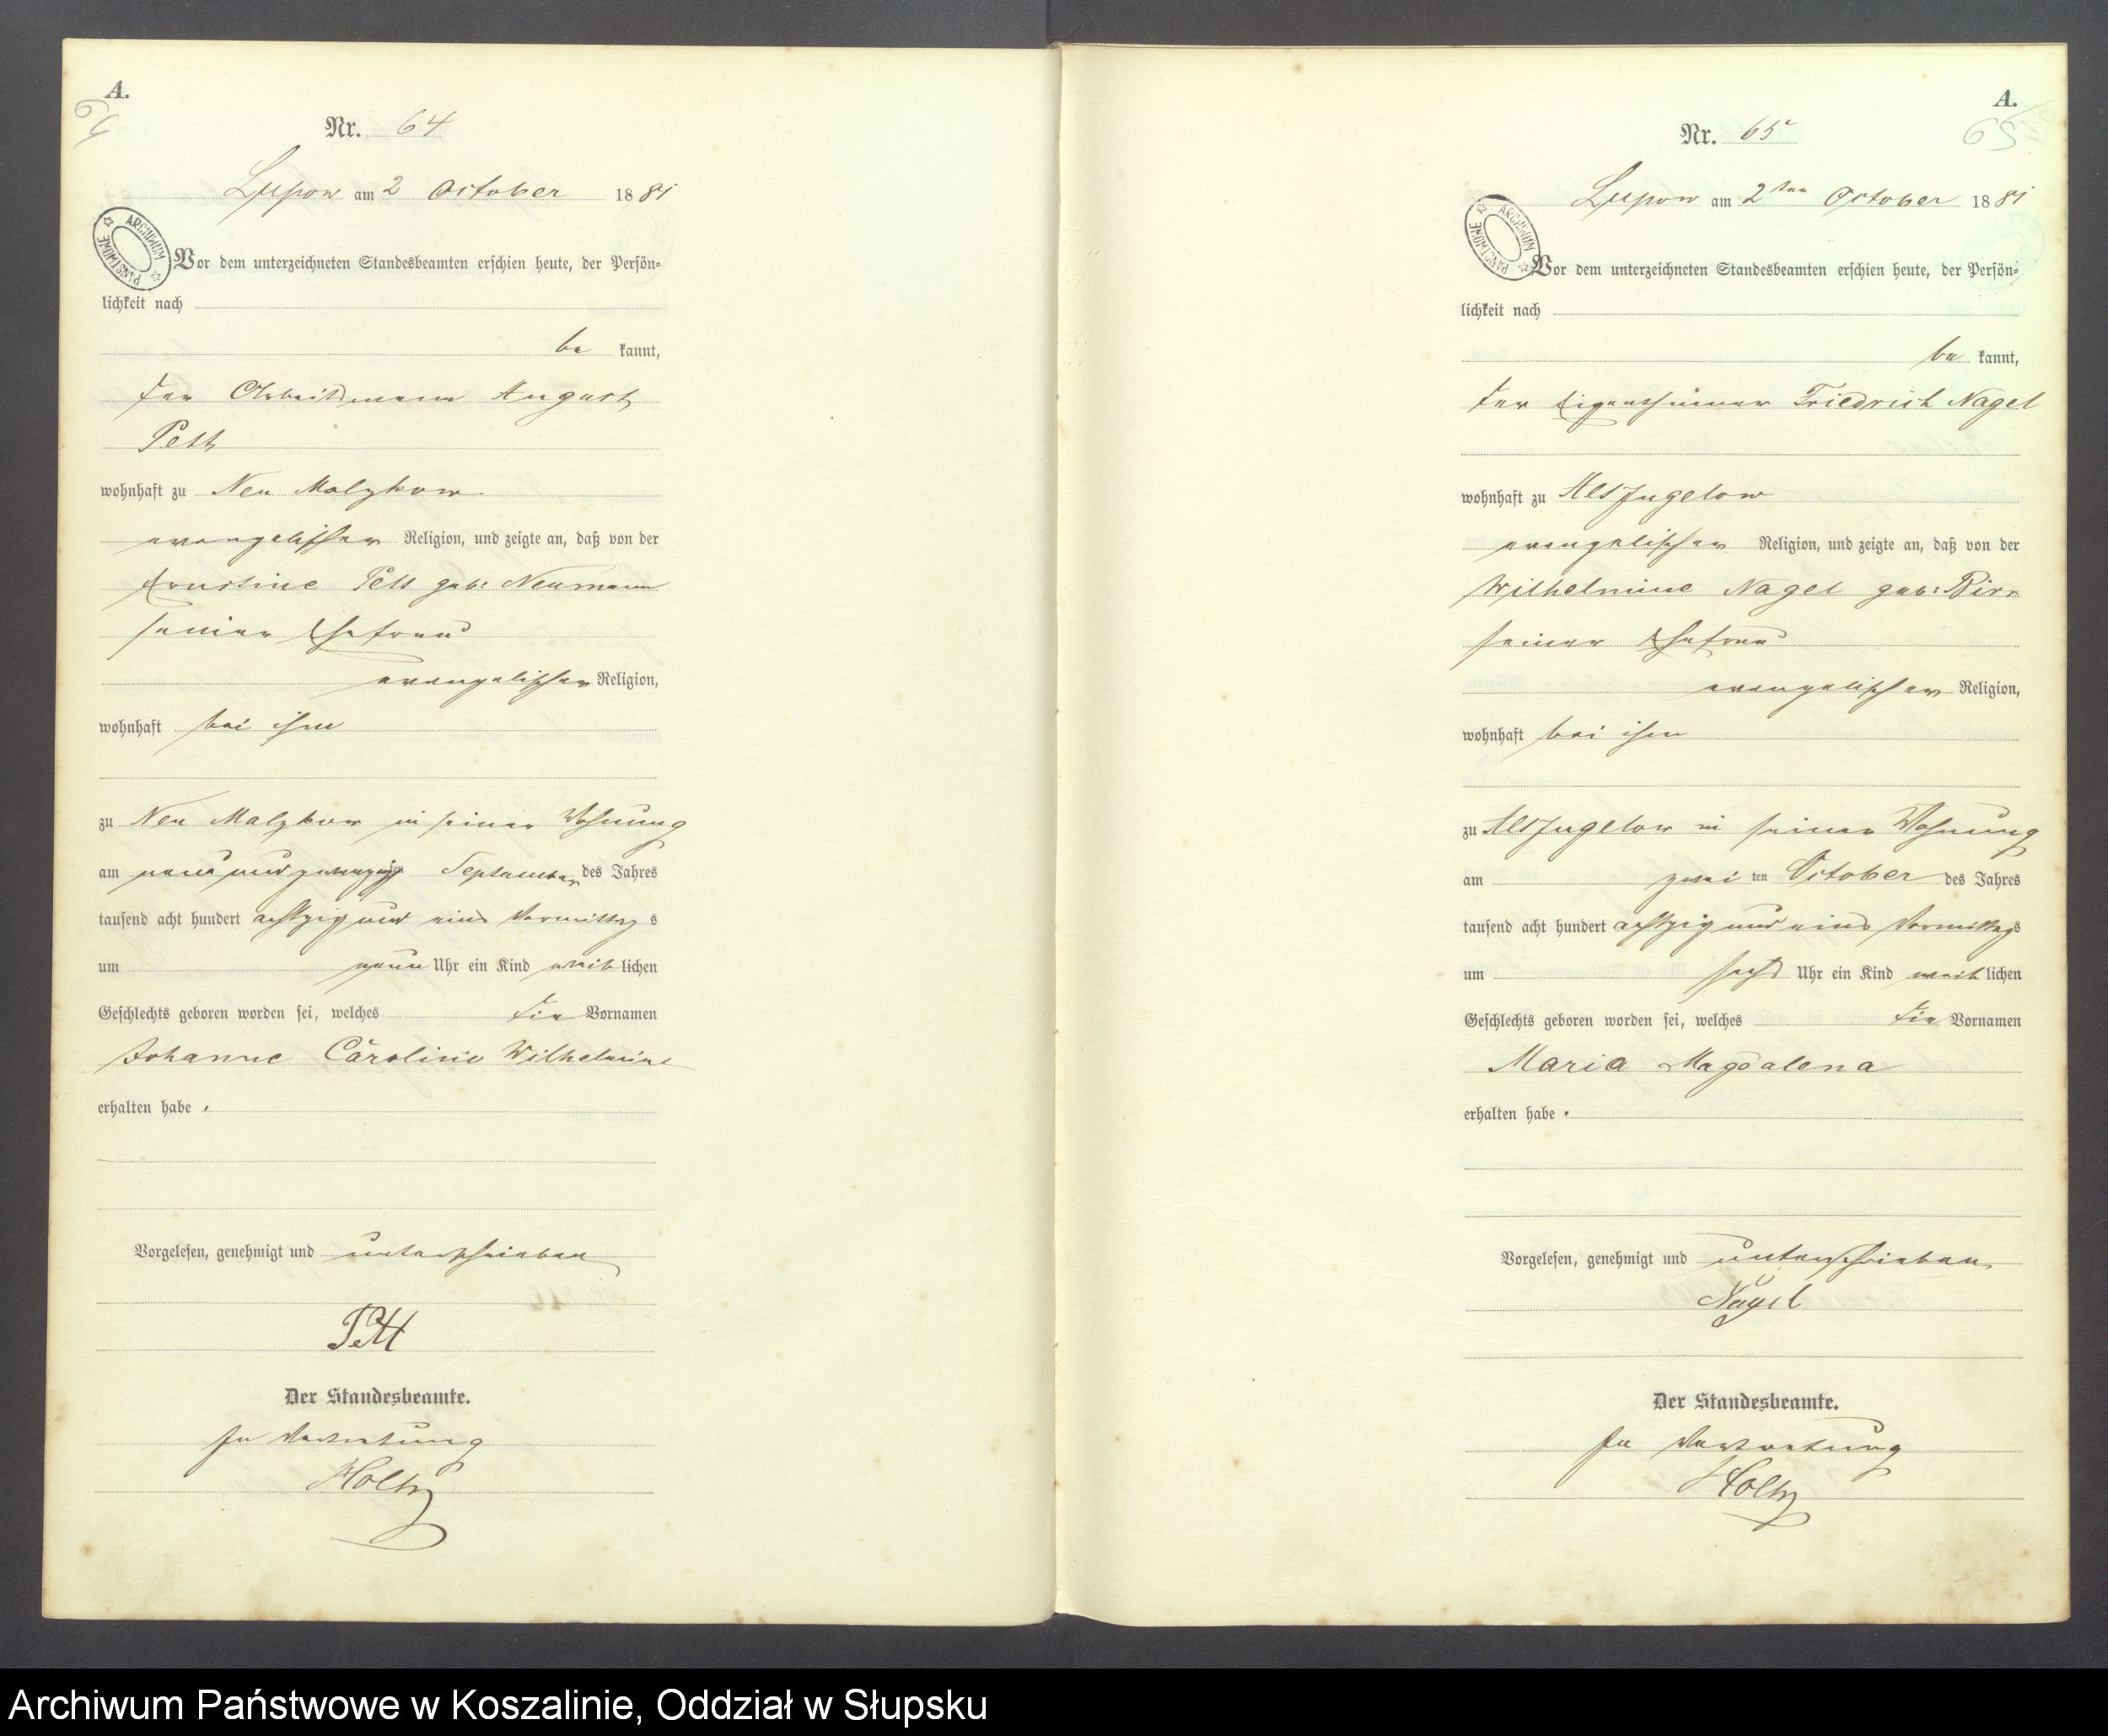 A.
64
Nr. 64
Lupow am 2 October 1881
ARCHIWUM PAŃSTWOWE
Vor dem unterzeichneten Standesbeamten erschien heute, der Persön-
lichkeit nach
be kannt,
der Arbeitsmann August
Pett
wohnhaft zu Neu Malzkow
evangelischer Religion, und zeigte an, daß von der
Ernstine Pett geb: Neumann
seiner Ehefrau
evangelischer Religion,
wohnhaft bei ihm
zu Neu Malzkow in seiner Wohnung
am neun und zwanzigsten September des Jahres
tausend acht hundert achtzig und eins Vormittag s
um neun Uhr ein Kind weib lichen
Geschlechts geboren worden sei, welches die Vornamen
Johanne Caroline Wilhelmine
erhalten habe .
Vorgelesen, genehmigt und unterschrieben
Pett
Der Standesbeamte.
In Vertretung
Holtz
A.
65
Nr. 65
Lupow am 2ten October 1881
ARCHIWUM PAŃSTWOWE
Vor dem unterzeichneten Standesbeamten erschien heute, der Persön-
lichkeit nach
be kannt,
der Eigenthümer Friedrich Nagel
wohnhaft zu Alt Jugelow
evangelischer Religion, und zeigte an, daß von der
Wilhelmine Nagel geb: Birr
seiner Ehefrau
evangelischer Religion,
wohnhaft bei ihm
zu Alt Jugelow in seiner Wohnung
am zwei ten October des Jahres
tausend acht hundert achtzig und eins Vormittags
um sechs Uhr ein Kind weib lichen
Geschlechts geboren worden sei, welches die Vornamen
Maria Magdalena
erhalten habe .
Vorgelesen, genehmigt und unterschrieben
Nagel
Der Standesbeamte.
In Vertretung
Holtz
Archiwum Państwowe w Koszalinie, Oddział w Słupsku